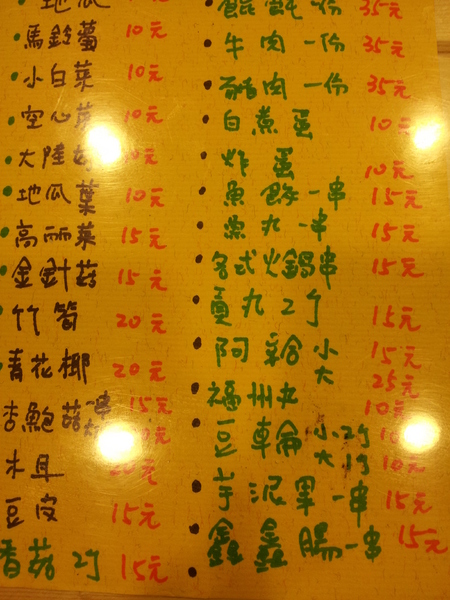 地瓜
馬鈴薯 10元
小白菜 10元
空心菜 10元
大陸 10元
地瓜葉 10元
高丽菜 15元
金針菇 15元
竹筍 20元
青花椰 20元
杏鮑菇一串 15元
大 元
木耳 20元
豆皮 15元
香菇 2个 15元
餛飩一份 35元
牛肉一份 35元
豬肉一份 35元
白煮蛋 10元
炸蛋 10元
魚餃一串 15元
丸一串 15元
各式火鍋串 15元
貢丸2个 15元
阿給小 15元
大 25元
福州丸 10元
豆輪小2个 10元
大1个 10元
芋泥 一串 15元
鑫鑫腸一串 15元